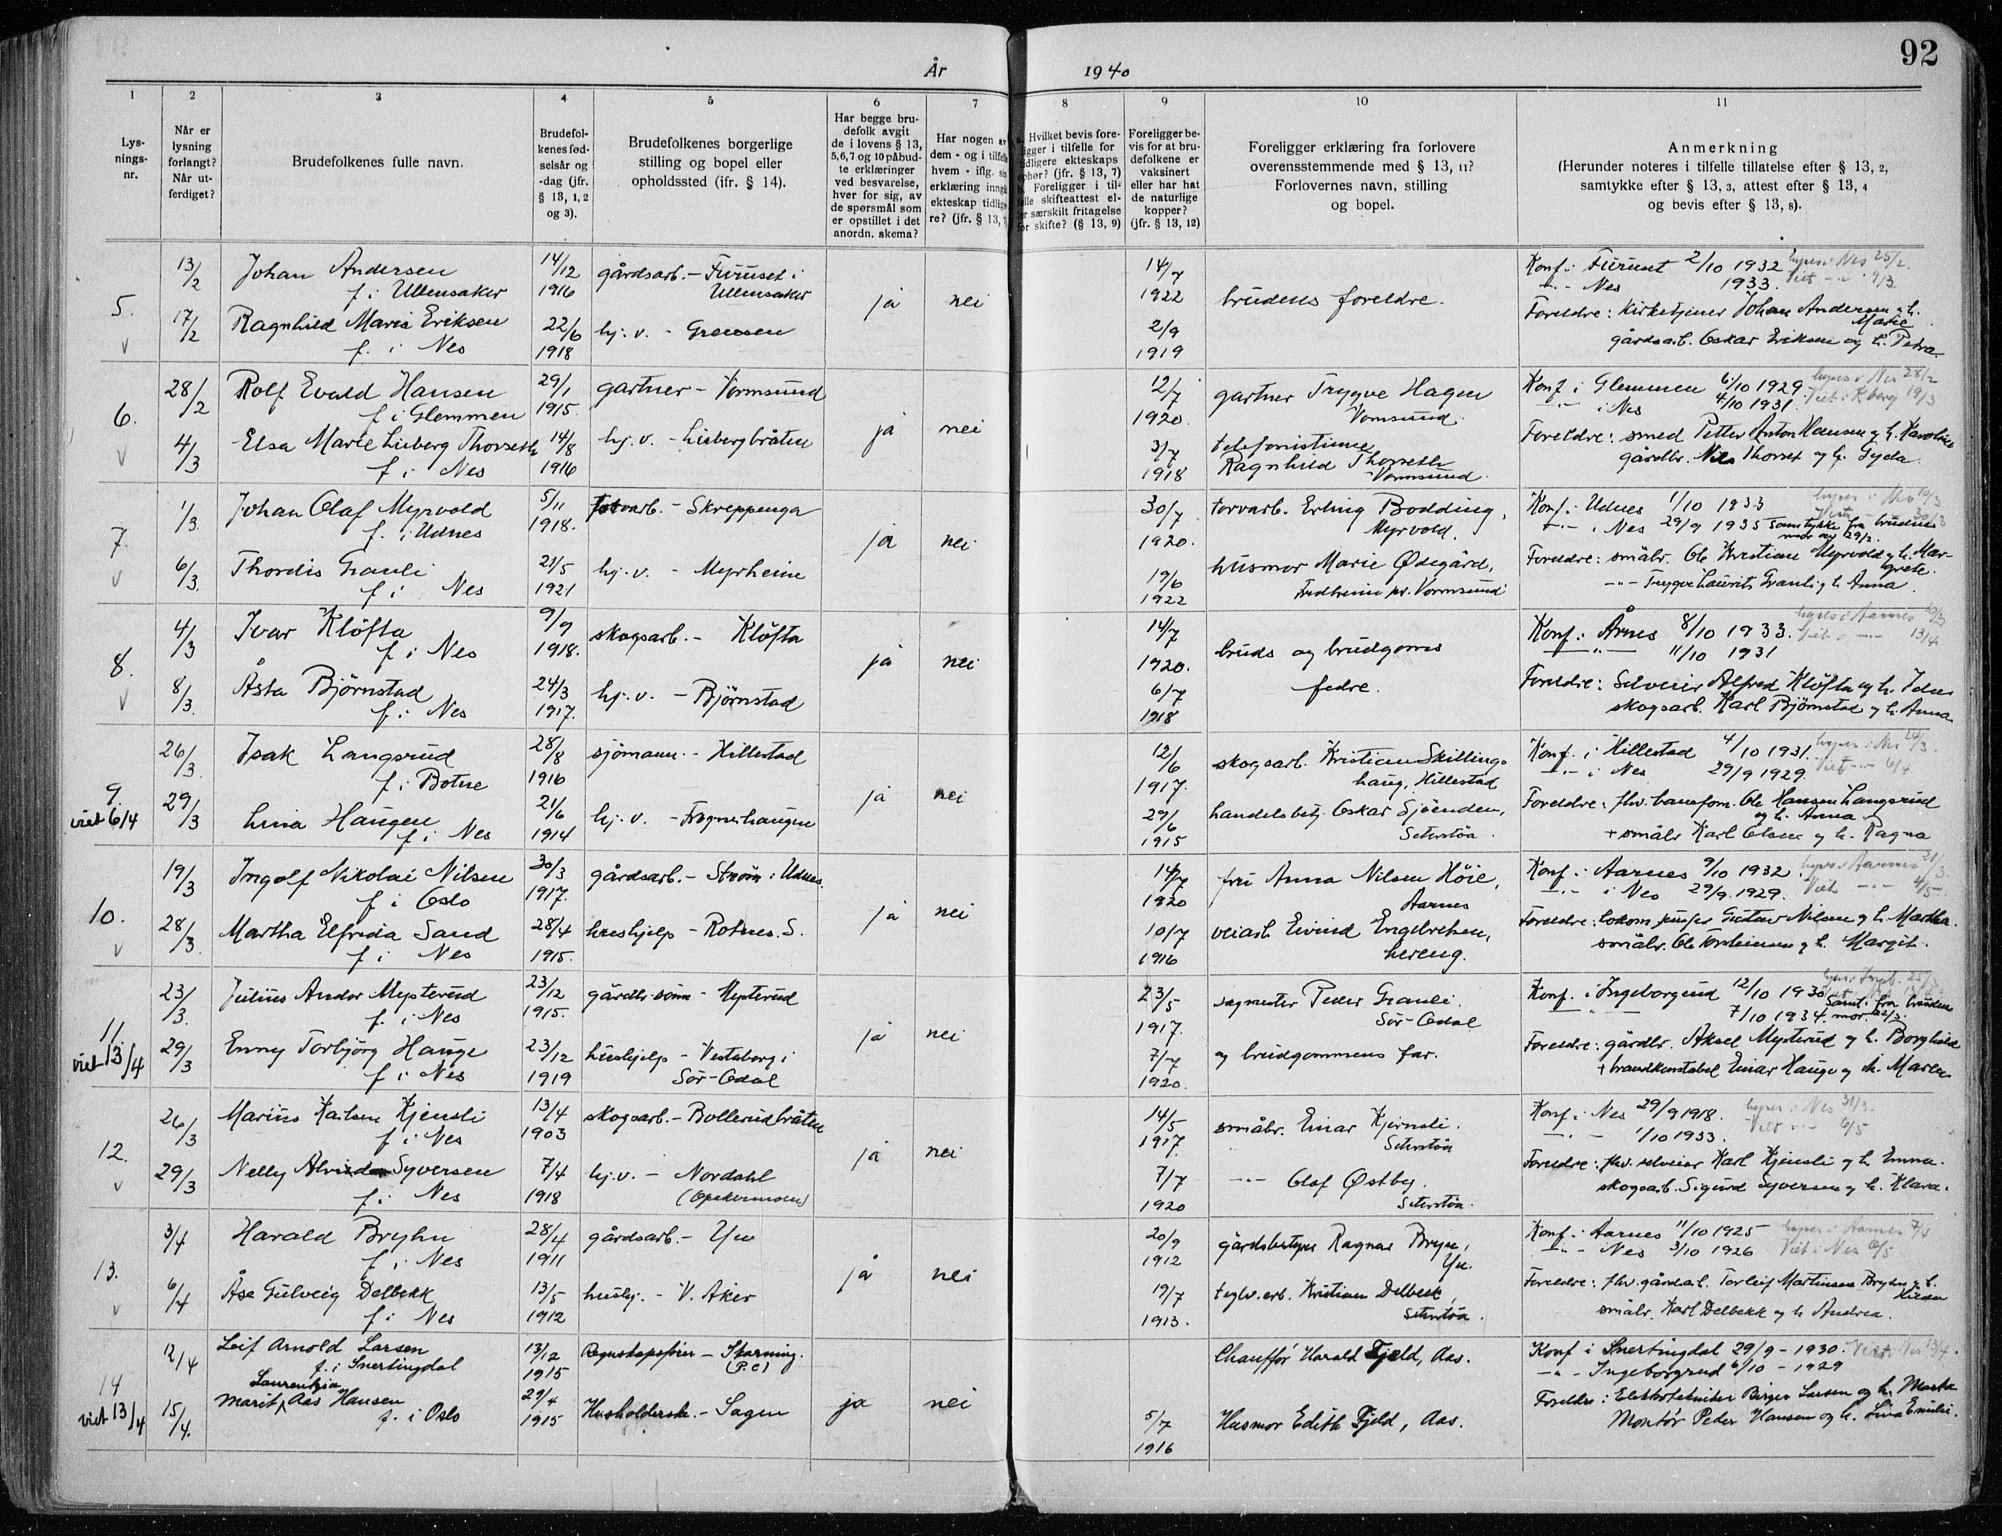 92
År 1940
1 2 3 4 5 6 7 8 9 10 11
Lys-
nings-
nr.
Når er
lysning
forlangt?
Når ut-
ferdiget?
Brudefolkenes fulle navn.
Brudefol-
kenes fød-
selsår og
-dag (jfr.
§ 13, 1, 2
og 3).
Brudefolkenes borgerlige
stilling og bopel eller
opholdssted (ifr. § 14).
Har begge bru-
defolk avgit
de i lovens § 13,
5, 6, 7 og 10 påbud-
te erklæringer
ved besvarelse,
hver for sig, av
de spørsmål som
er opstillet i det
anordn. skema?
Har nogen av
dem - og i tilfelle
hvem - iflg. sin
erklæring inngå
ekteskap tidlige
re? (jfr. § 13,
Hvilket bevis fore-
ligger i tilfelle for
tidligere ekteskaps
ophør? (jfr. § 13, 7)
b. Foreligger i til-
felle skifteattest el-
ler særskilt fritagelse
for skifte? (§ 13, 9)
Foreligger be-
vis for at bru-
defolkene er
vaksinert
eller har hat
de naturlige
kopper?
(jfr. § 13, 12)
Foreligger erklæring fra forlovere
overensstemmende med § 13, 11?
Forlovernes navn, stilling
og bopel.
Anmerkning
(Herunder noteres i tilfelle tillatelse efter § 13, 2,
samtykke efter § 13, 3, attest efter § 13, 4
og bevis efter § 13, 8).
5. v
13/2 Johan Andersen 14/12 gårdsarb. - Furuset i 14/7 Konf. i Furuset 2/10 1932 lyses i Nes 25/2.
f. i Ullensaker 1916 Ullensaker ja nei 1922 brudens foreldre. -"- Nes 1933. Viet -"- 9/3
17/2 Ragnhild Maria Eriksen 22/6 hj. v. - Gransen 2/9 Foreldre: Kirketjener Johan Andersen og h. Marie
f. i Nes 1918 1919 gårdsarb. Oskar Eriksen og h. Petra.
6. v
28/2 Rolf Evald Hansen 29/1 gartner - Vormsund 12/7 gartner Trygve Hagen Konf. i Glemmen 6/10 1929. lyses i Nes 28/2
f. i Glemmen 1915. ja nei 1920. Vormsund. -"- i Nes 4/10 1931. Viet i Kberg 19/3
4/3 Elsa Marie Lieberg Thorseth 14/8 hj. v. - Liebergbråten 3/7 telefonistinne Foreldre: smed Petter Anton Hansen og h. Karoline
f. i Nes 1916 1918 Ragnhild Thorseth Vormsund. gårdbr. Nils Thorset og h. Gyda.
7. v
1/3. Johan Olaf Myrvold 5/11 torvarb. - Skreppenga 30/7 torvarb. Erling Bodding, Konf. i Udnes 1/10 1933 lyses i Nes 10/3
f. i Udnes 1918. ja nei 1920. Myrvold. -"- i Nes 29/9 1935 Viet -"- 30/3 Samtykke fra brudens mor av 29/2.
6/3. Thordis Granli 21/5 hj. v. - Myrheim 19/6 husmor Marie Ødegård, Foreldre: småbr. Ole Kristian Myrvold og h. Mar-
grete.
f. i Nes 1921 1922 Fredheim pr. Vormsund -"- Trygve Laurits Granli og h. Anna.
8. v
4/3 Ivar Kløfta 9/9 skogsarb. - Kløfta 14/7 bruds og brudgoms Konf. i Årnes 8/10 1933. lyses i Aarnes
f. i Nes 1918. ja nei 1920. fedre. 11/10 1931 Viet -"- 13/4
8/3. Åsta Bjørnstad 24/3 hj. v. - Bjørnstad 6/7 Foreldre: Selveier Alfred Kløfta og h.
f. i Nes 1917. 1918 skogsarb. Karl Bjørnstad og h. Anna
9. viet 6/4
26/3. Isak Langsrud 28/8 sjömann. - Hillestad 12/6 skogsarb. Kristian Skillings- Konf. i Hillestad 4/10 1931. lyses i Nes 24/3.
f. i Botne 1916 ja nei 1917. haug, Hillestad -"- i Nes 29/9 1929. Viet -"- 6/4
29/3 Lina Haugen 21/6 hj. v. - Fragnerhaugen 29/6 handelsbetj. Oskar Sjøenden, Foreldre: fhv. baneform. Ole Hansen Langsrud og h. Anna
f. i Nes 1914 1915 Seterstøa. + småbr. Karl Olsen og h. Ragna
10. v
19/3 Ingolf Nikolai Nilsen 30/3 gårdsarb. - Strøm i Udnes. 14/7 fru Anna Nilsen Höie, Konf. i Aarnes 9/10 1932. lyses i Aarnes 21/3
f. i Oslo 1917. ja nei 1920 Aarnes -"- i Nes 29/9. 1929. Viet -"- 4/5.
28/3. Martha Elfrida Sand 28/4 hushjelp - Rotnes. S. 10/7 veiarb. Eivind Engebretsen, Foreldre: Gustav Nilsen og h. Martha.
f. i Nes 1915. 1916 Hereng. småbr. Ole Torsteinsen og h. Margit.
11. viet 13/4
23/3. Julius Andor Mysterud 23/12 gårdbr.sønn - Mysterud 23/5 sagmester Peder Granli. Konf. i Ingeborgrud 12/10 1930
f. i Nes 1915. ja nei 1917. Sör-Odal 7/10 1934. Samt. fra brudens mor 22/3.
29/3 Enny Torbjörg Hauge 23/12 hushjelp - Vestaberg i 7/7 og brudgommens far. Foreldre: gårdbr. Aksel Mysterud og h. Borghild
f. i Nes 1919 Sör-Odal 1920. + brandkonstabel Einar Hauge og h. Maren
12. v
26/3 Marius Karlsen Kjensli 13/4 skogsarb. - Bollerudbråten 14/5 småbr. Einar Kjernsli. Konf. i Nes 29/9 1918. lyses i Nes 31/3.
f. i Nes 1903 ja nei 1917. Seterstøa -"- 1/10 1933. Viet -"- 6/5
29/3 Nelly Syversen 7/4 hj. v. - Nordahl 7/7 -"- Olaf Østby, Foreldre: fhv. selveier Karl Kjensli og h. Emma.
f. i Nes 1918 (Opakermoen) 1920 Seterstøa. skogsarb. Sigurd Syversen og h. Klara.
13. v
3/4 Harald Bryhn 28/4 gårdsarb. - Yu 20/9 gårdsbestyrer Ragnar Bryn, Konf. i Aarnes 11/10 1925 lyses i Aarnes 7/4
f. i Nes 1911 ja nei 1912 Yu. -"- Nes 3/10 1926 Viet i Nes 6/5
6/4 Åse Gulveig Delbekk 13/5 hushj. - V. Aker 19/7 teglv.arb. Kristian Delbekk, Foreldre: fhv. gårdsb. Torleif Martinsen Bryhn og h.
f. i Nes 1912 1913. Seterstøa. småbr. Karl Delbekk og h. Andrea.
14 viet 13/4
12/4 Leif Arnold Larsen 13/12 Regnskapsfører - Skarning. Chauffør Harald Fjeld, Aas. Konf i Snertingdal 29/9 - 1930. Viet i Nes 13/4.
f. i Snertingdal 1915 (P.C) -"- Ingeborgrud 6/10 - 1929
Laurentzia
15/4. Marit Aas Hansen 29/4 Husholdersk. - Sagen ja nei 5/7 Husmor Edith Fjeld, Aas. Foreldre: Elektrotekniker Birger Larsen og h. Marta
f. i Oslo 1915 1916 Montør Peder Hansen og h. Lina Emilie.